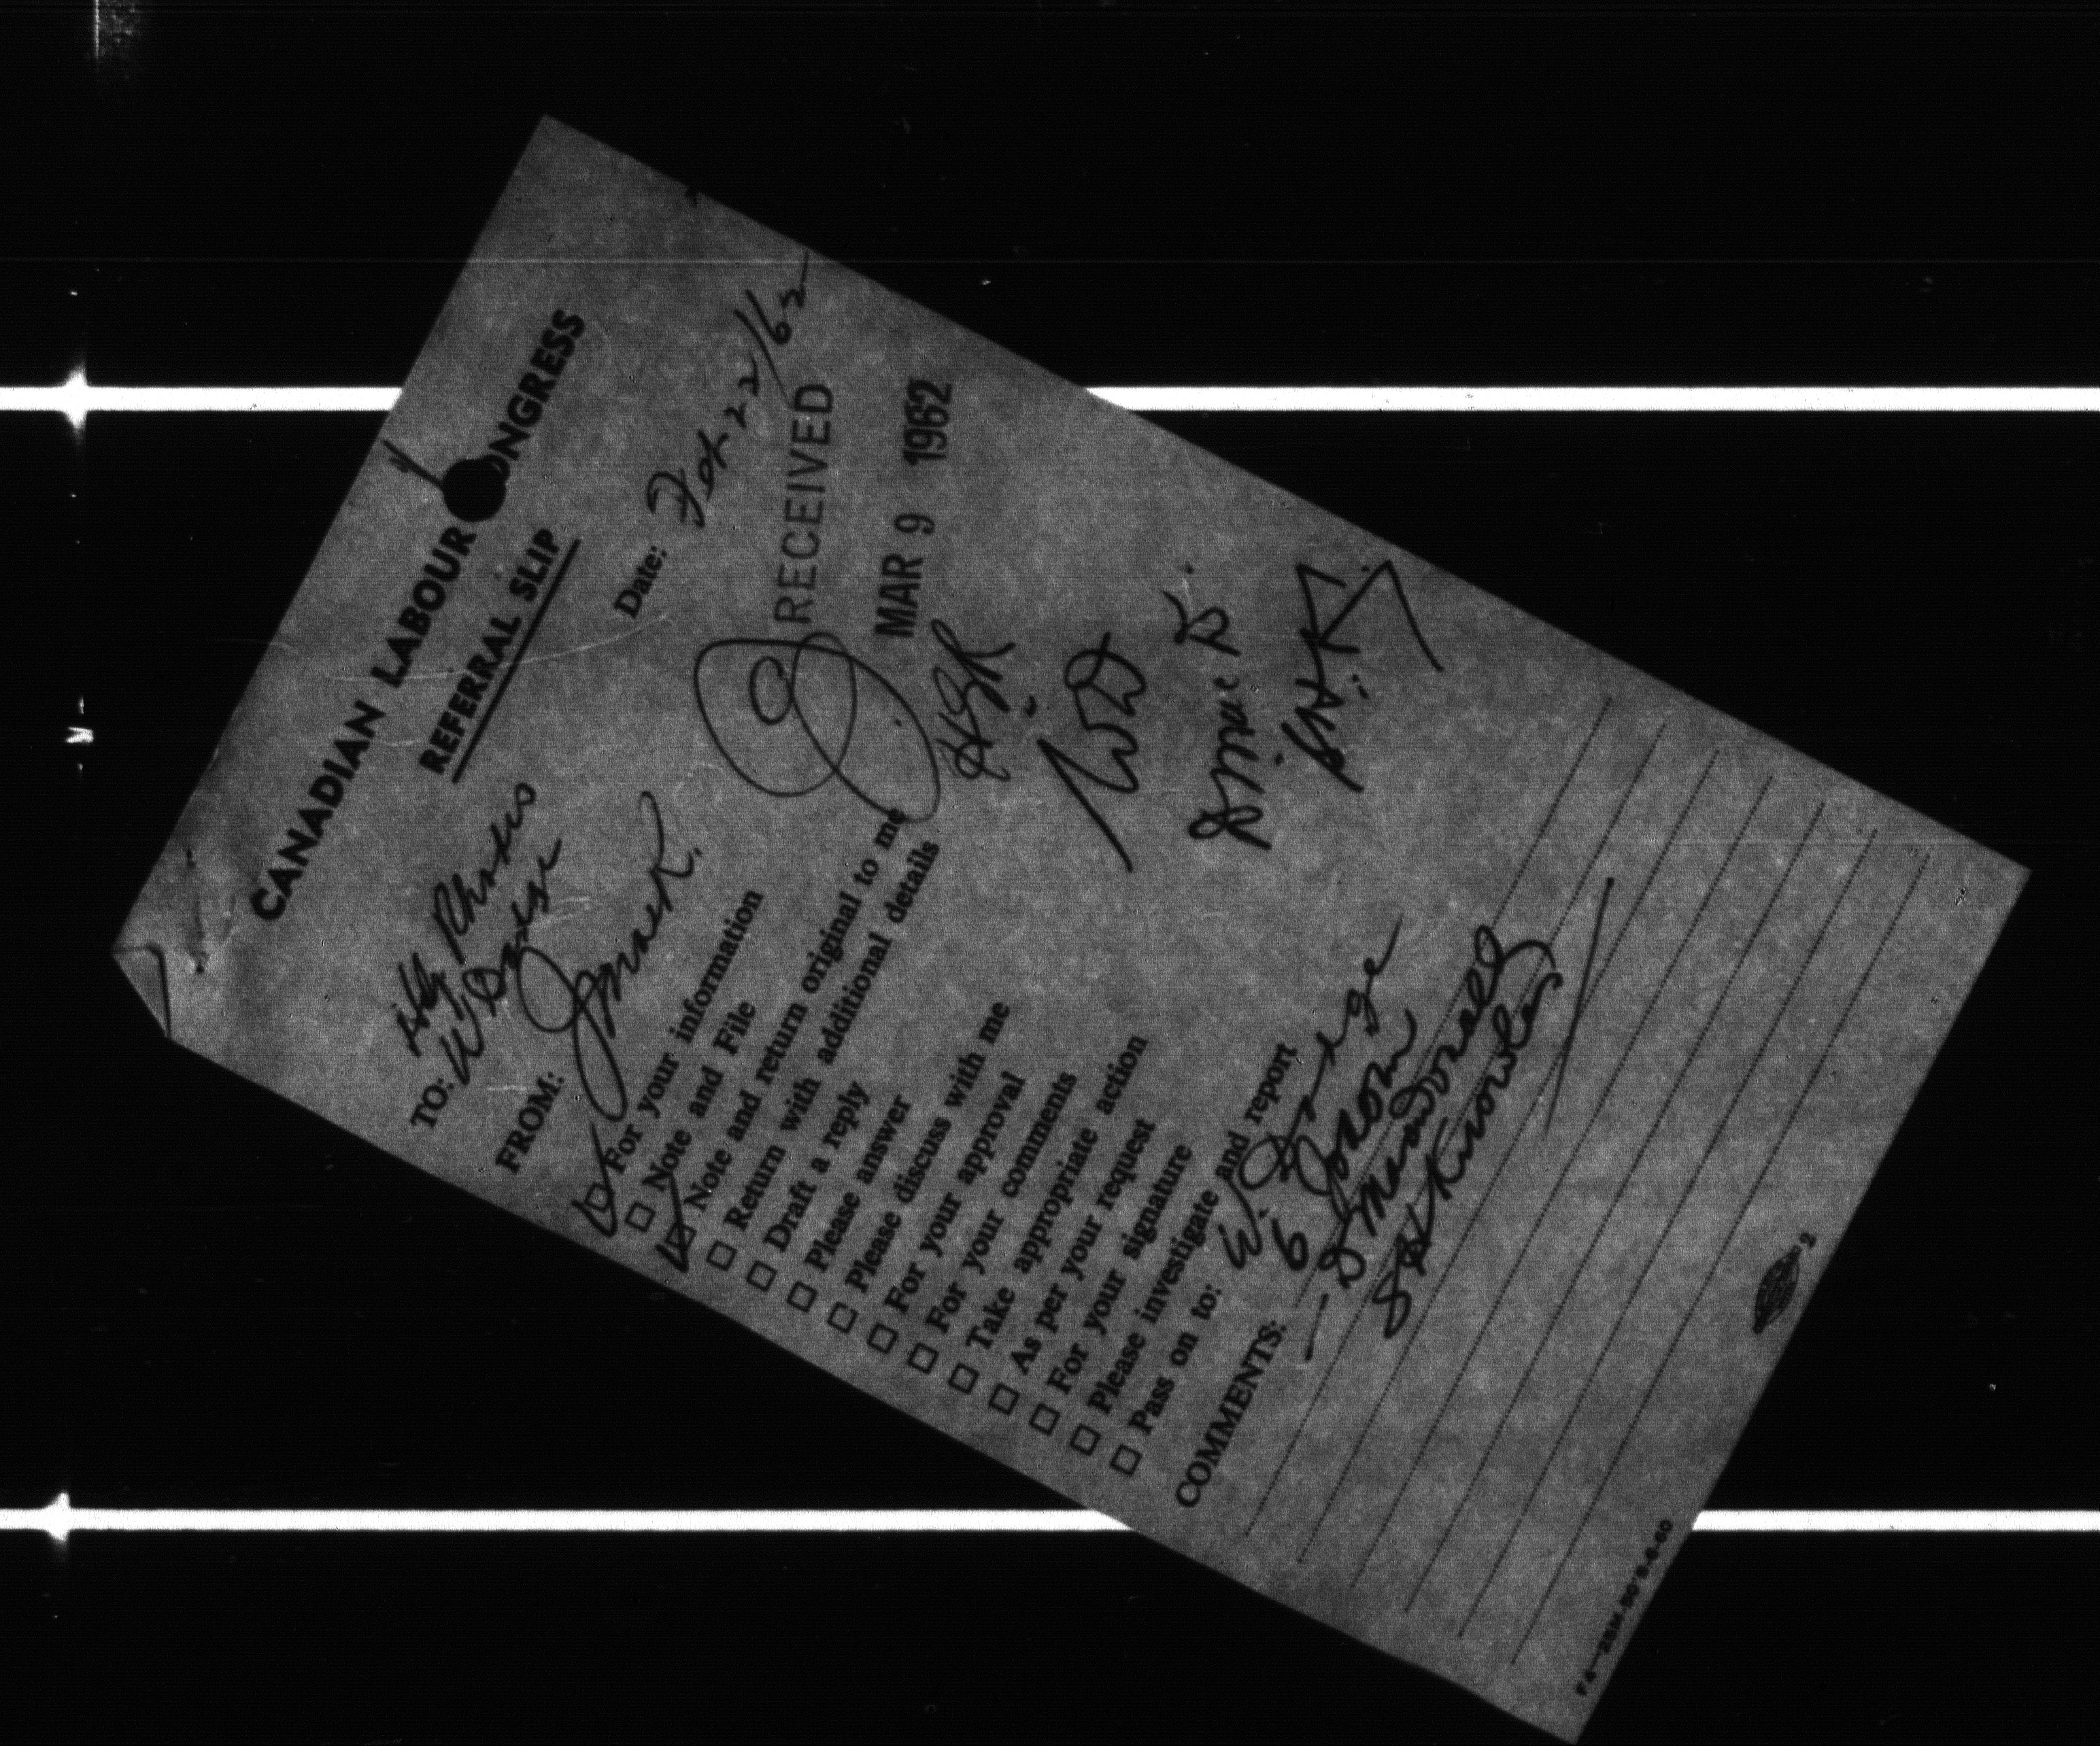 CANADIAN LABOUR CONGRESS
REFERRAL SLIP
Date: Feb 22/62
TO: Hy Rhodes
W Dodge
FROM: J Mack.
RECEIVED
MAR 9 1962
For your information
Note and File
Note and return original to me
Return with additional details
Draft a reply
Please answer
Please discuss with me
For your approval
For your comments
Take appropriate action
As per your request
For your signature
Please investigate and report
Pass on to: W. Dodge
G Jodoin
COMMENTS: D MacDonald
S H Knowles
WD
SHK
F 4—25M-50's-8-60